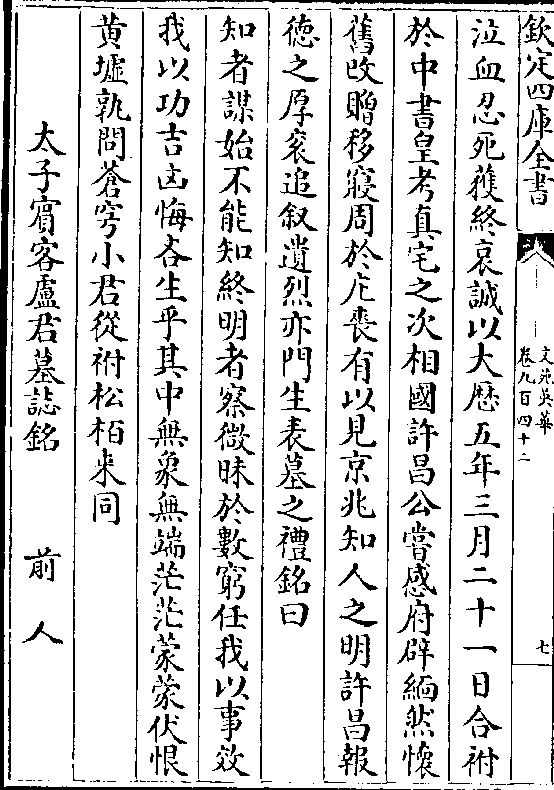 欽定四庫全書
文苑英華
卷九百四十二
七
泣血忍死獲終哀誠以大歴五年三月二十一日合祔
於中書皇考真宅之次相國許昌公嘗感府辟緬然懷
舊改贈移寢周於庀喪有以見京兆知人之明許昌報
徳之厚裒追叙遺烈亦門生表墓之禮銘曰
知者謀始不能知終明者察微昧於數窮任我以事效
我以功吉凶悔吝生乎其中無象無端茫茫蒙蒙伏恨
黄墟孰問蒼穹小君從祔松栢来同
太子賓客盧君墓誌銘
前人